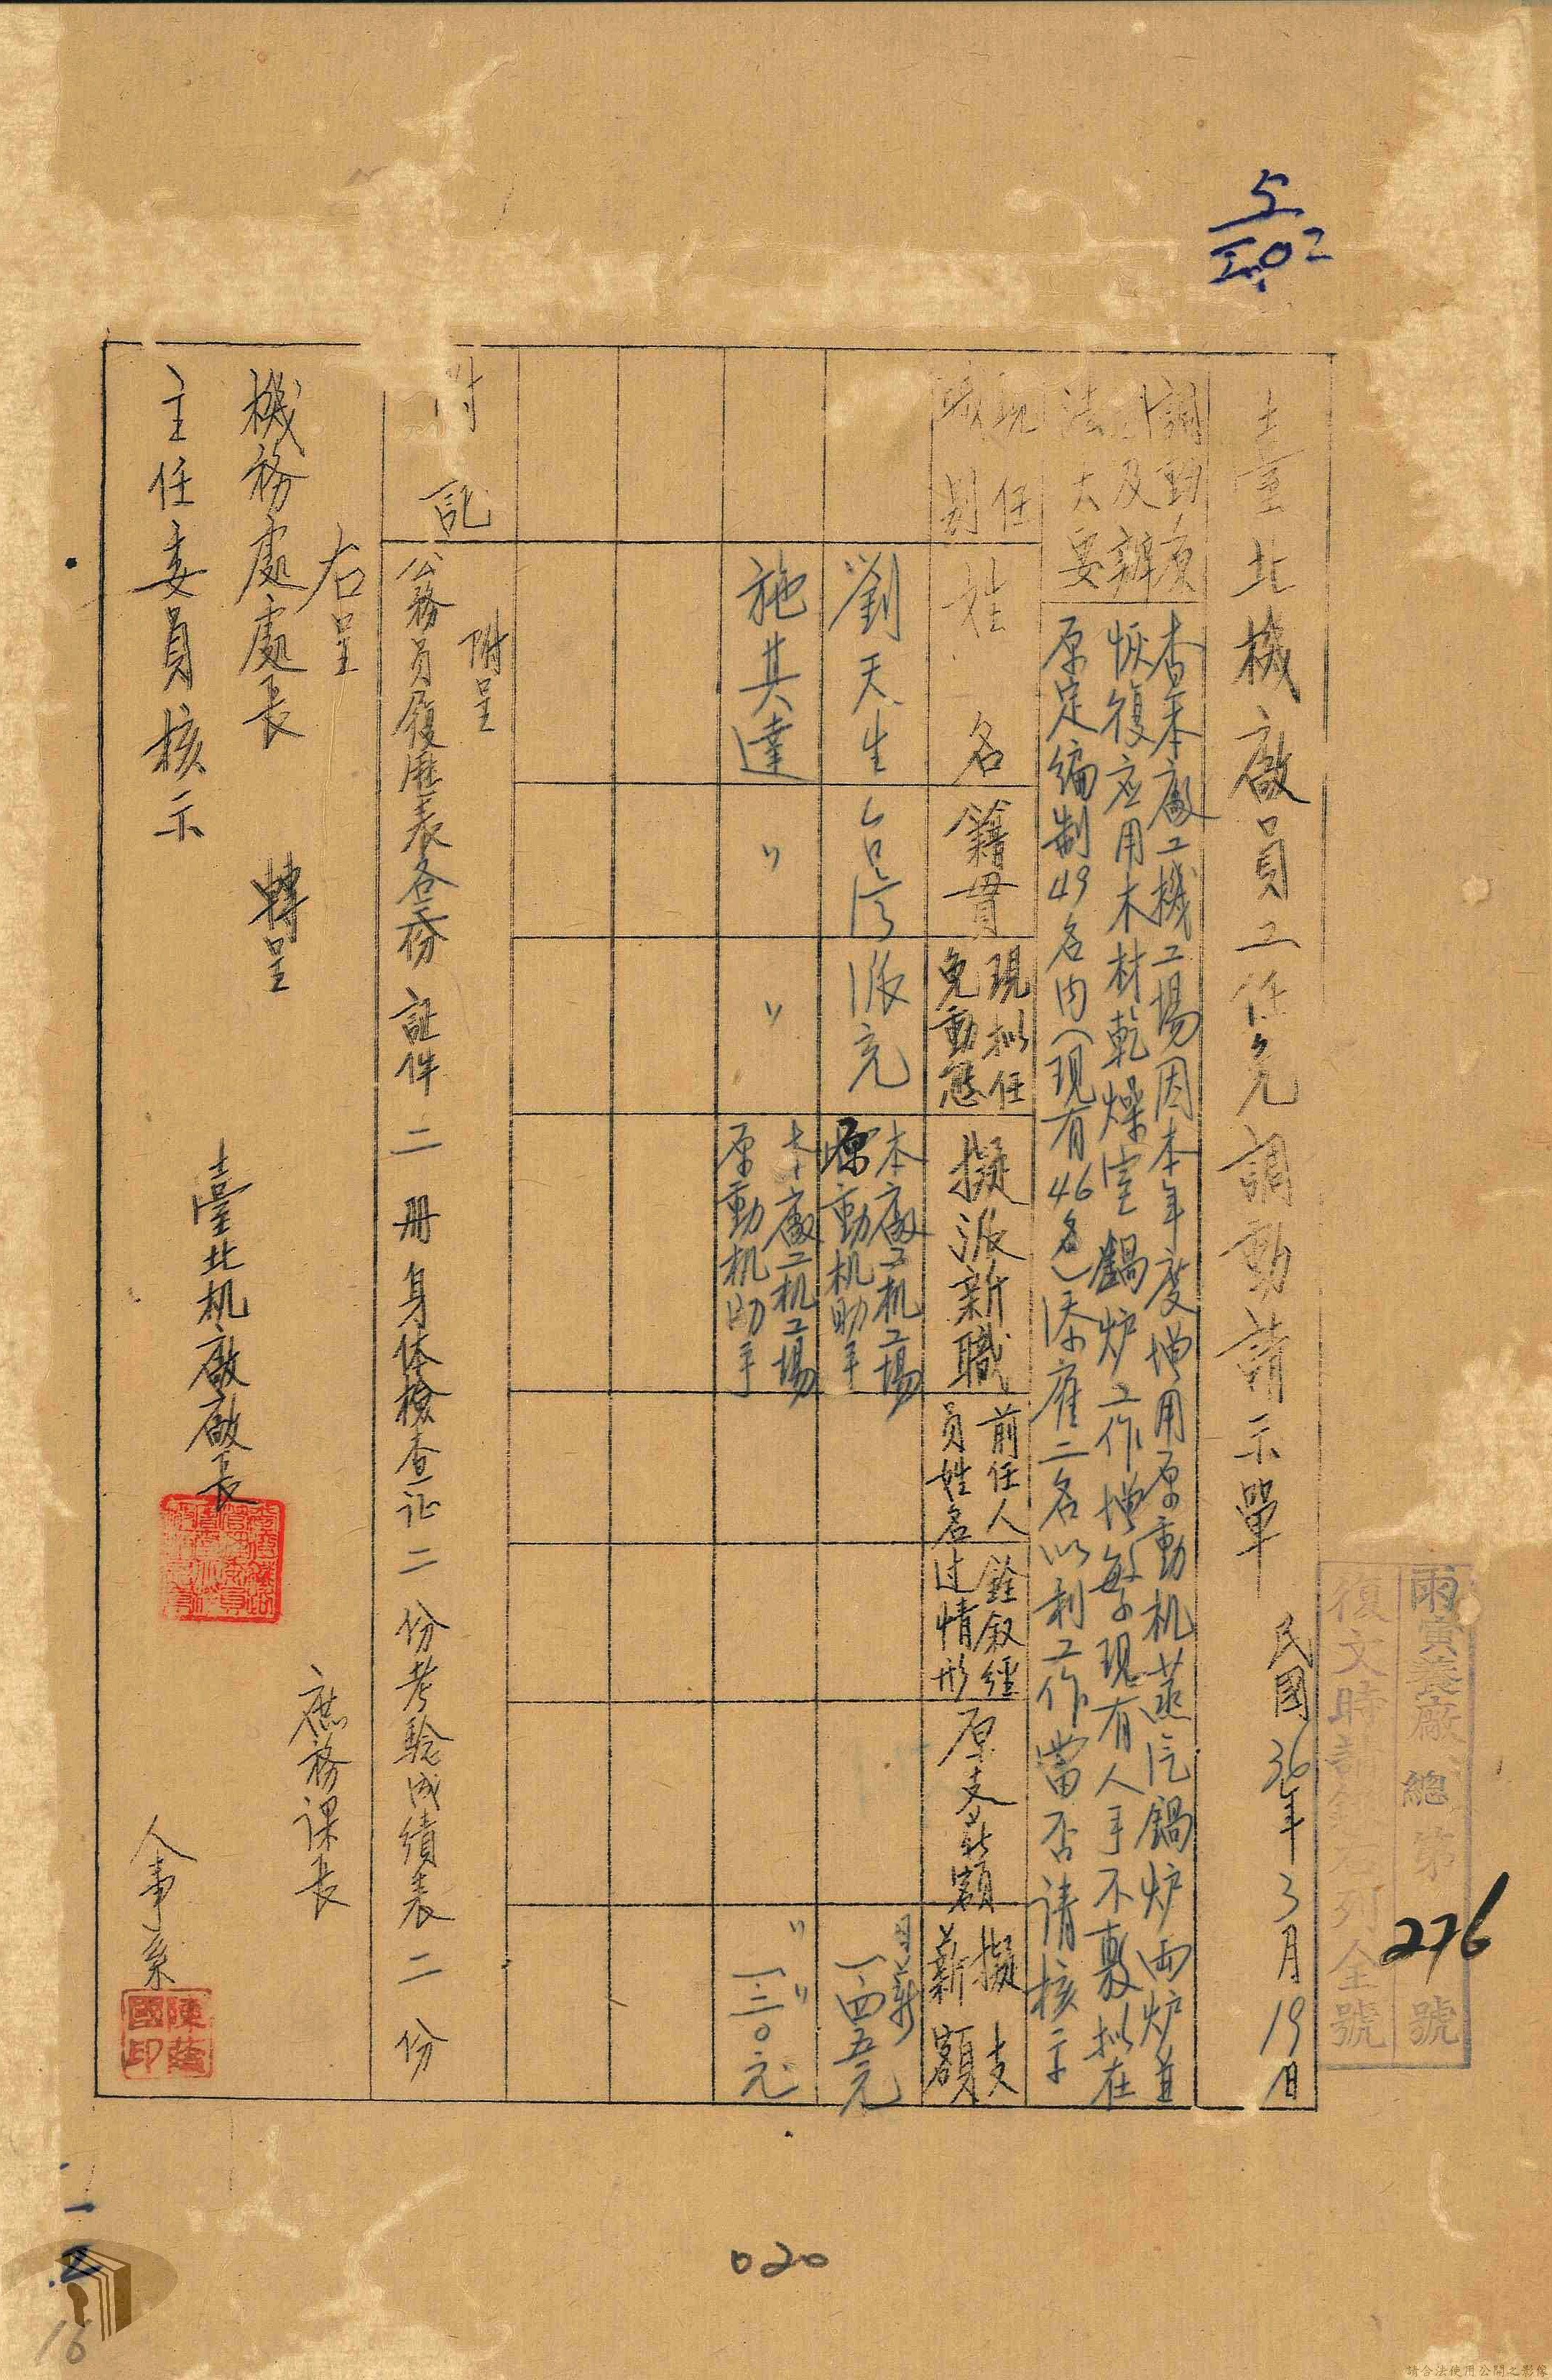 5
雨寅義廠總第276號
復文時請錄右列全號
臺北機廠員工任免調動請示單
民國36年3月19日
調動原
因及辦
法大要
查本廠工機工場因本年度增用原動机蒸汽鍋炉両炉並
恢復应用木材乾燥室鍋炉工作增繁現有人手不敷拟在
原定編制49名內(現有46名)添雇二名以利工作當否请核示
現任
職別
姓名
籍貫
現拟任
免動態
擬派新職
前任人
員姓名
銓叙經
过情形
原支薪額
擬支
薪額
劉天生
台湾
派充
本廠工机工場
原動机助手
月薪
一.四五元
施其達
〃
〃
本廠工机工場
原動机助手
〃 〃
一.三〇元
附記
附呈
公務員履歷表各弍份 証件二册 身体檢查证二份考驗成績表二份
右呈
機務處處長 轉呈
主任委員核示
臺北机廠廠長
庶務課長
人事系
020
16
請合法使用公開之影像